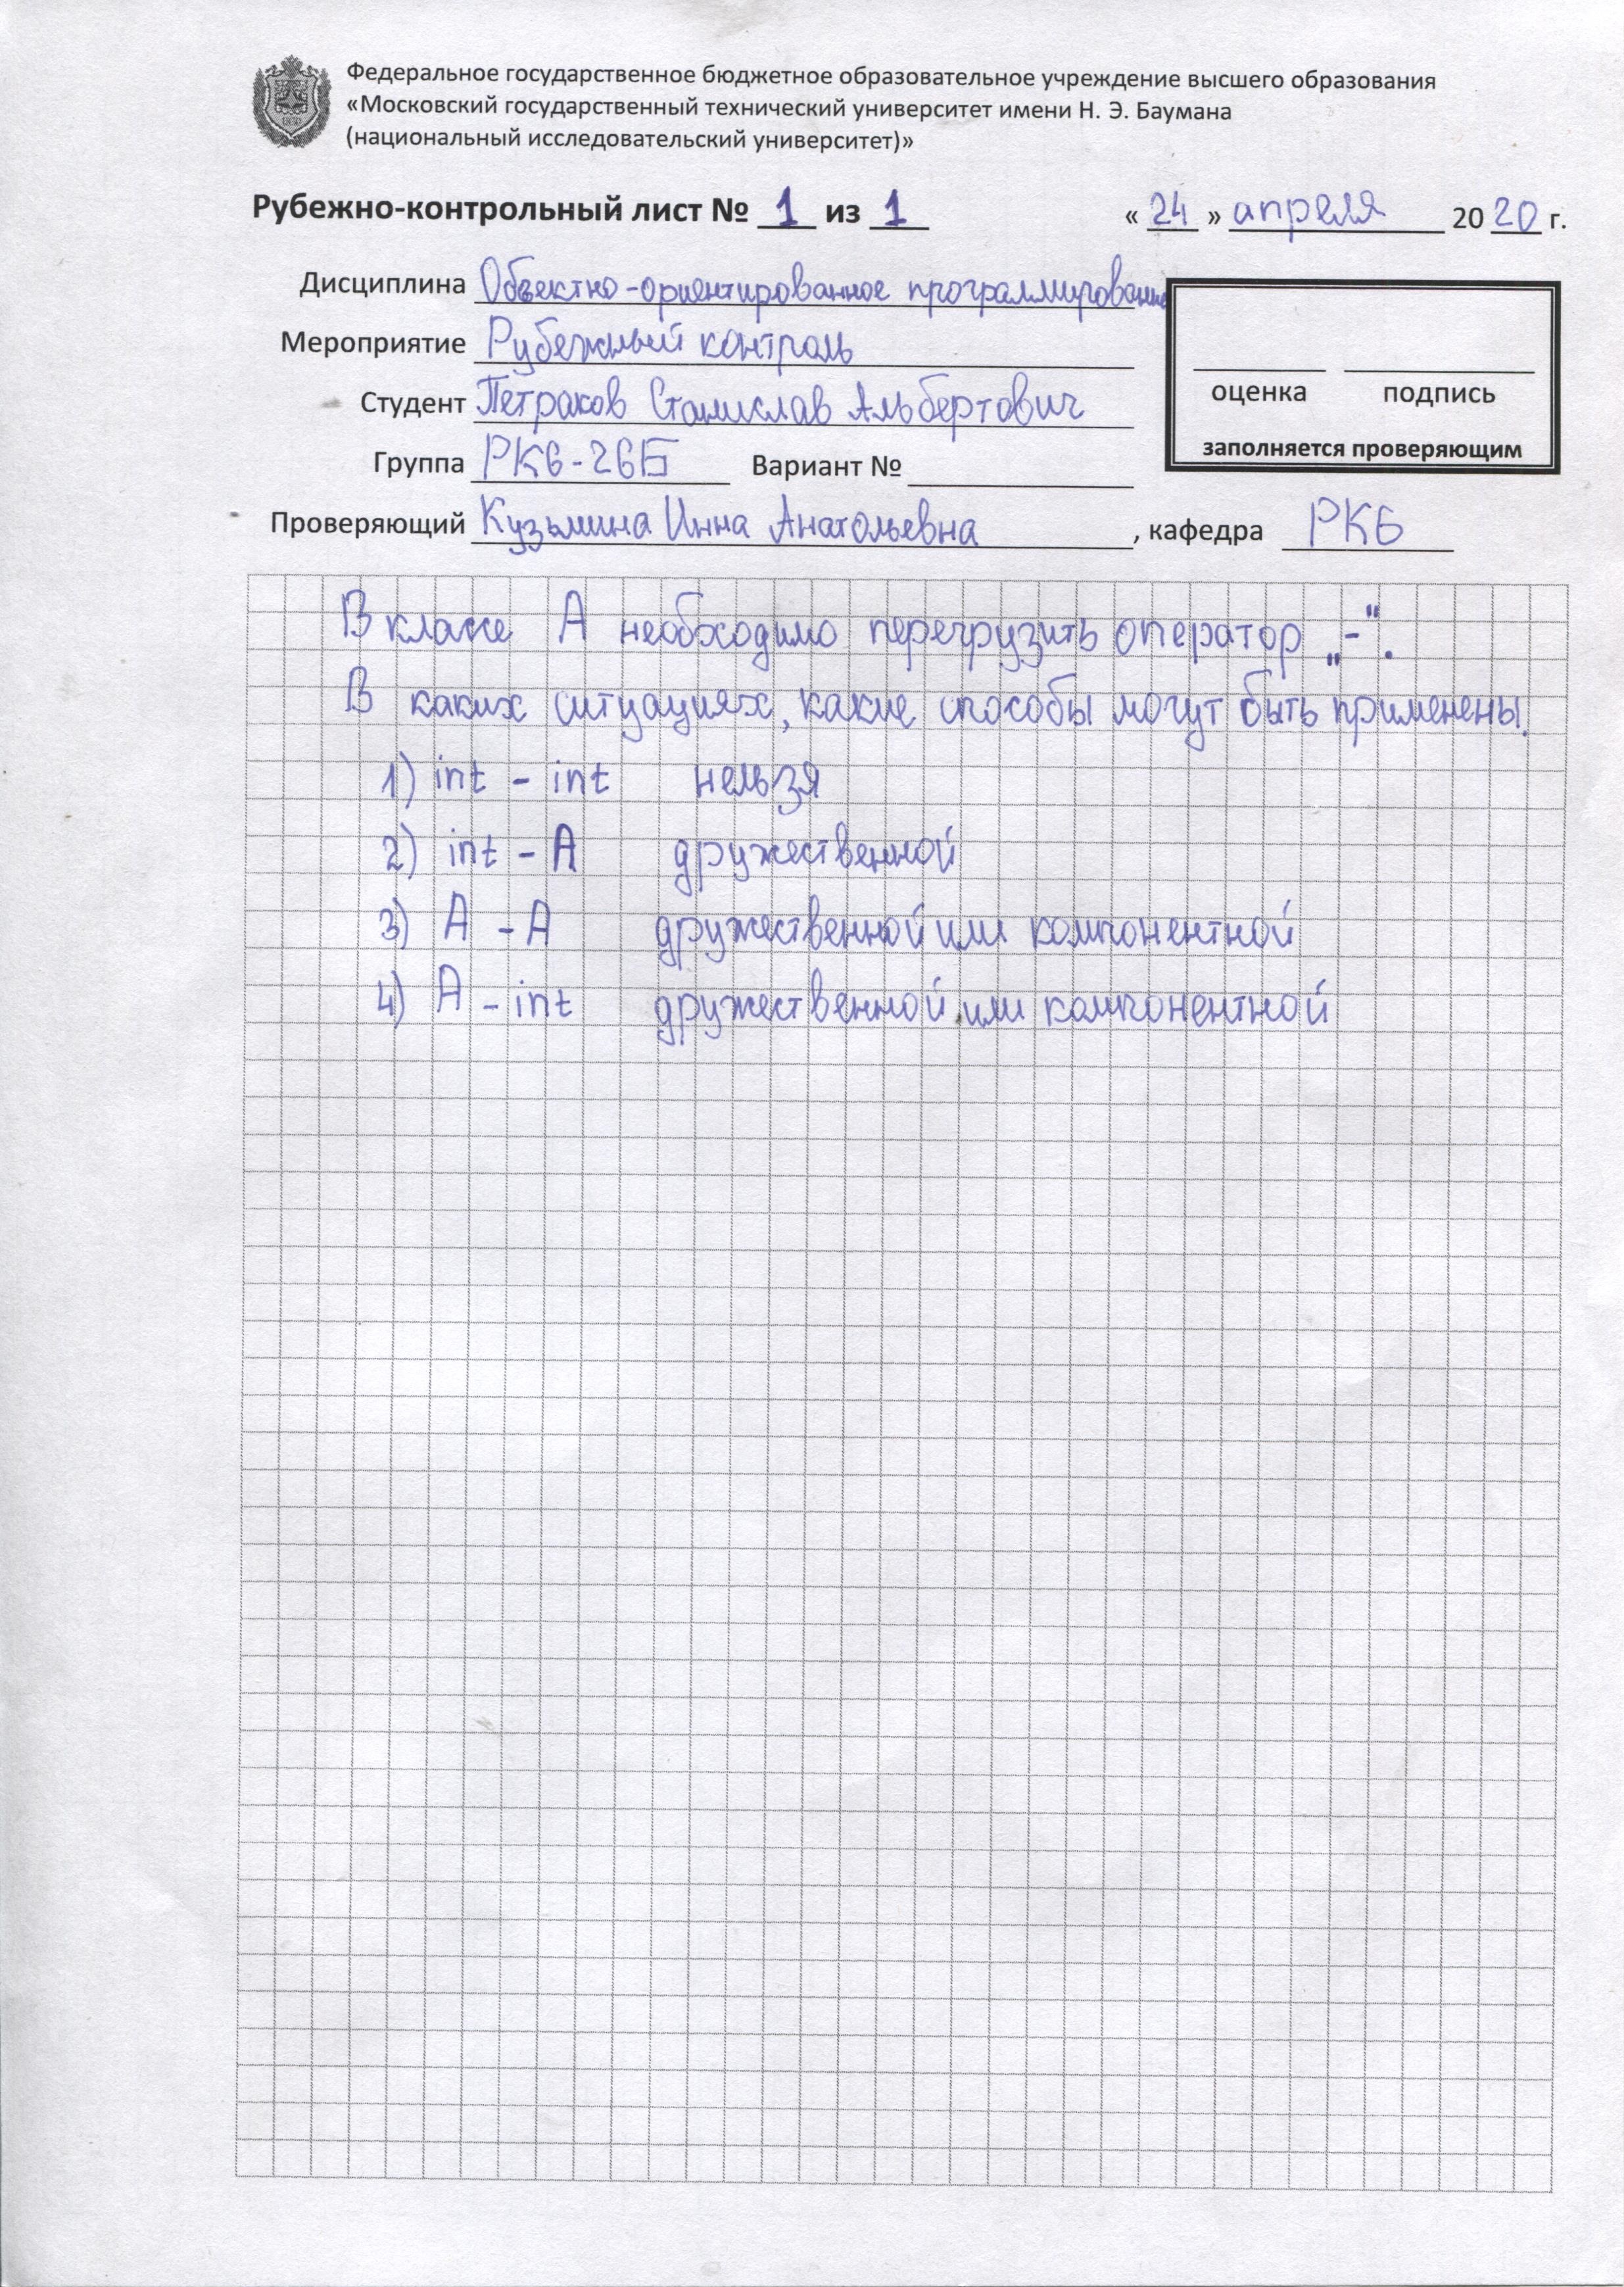 Федеральное государственное бюджетное образовательное учреждение высшего образования
«Московский государственный технический университет имени Н. Э. Баумана
(национальный исследовательский университет)»
Рубежно-контрольный лист № 1 из 1 « 24 » апреля 20 20 г.
Дисциплина Объектно-ориентированное программирование
Мероприятие Рубежный контроль
Студент Петраков Станислав Альбертович
оценка подпись
Группа РК6-26Б Вариант №
заполняется проверяющим
Проверяющий Кузьмина Инна Анатольевна, кафедра РК6
В классе А необходимо перегрузить оператор „-".
В каких ситуациях, какие способы могут быть применены.
1) int - int нельзя
2) int - A дружественной
3) A - A дружественной или компонентной
4) A - int дружественной или компонентной